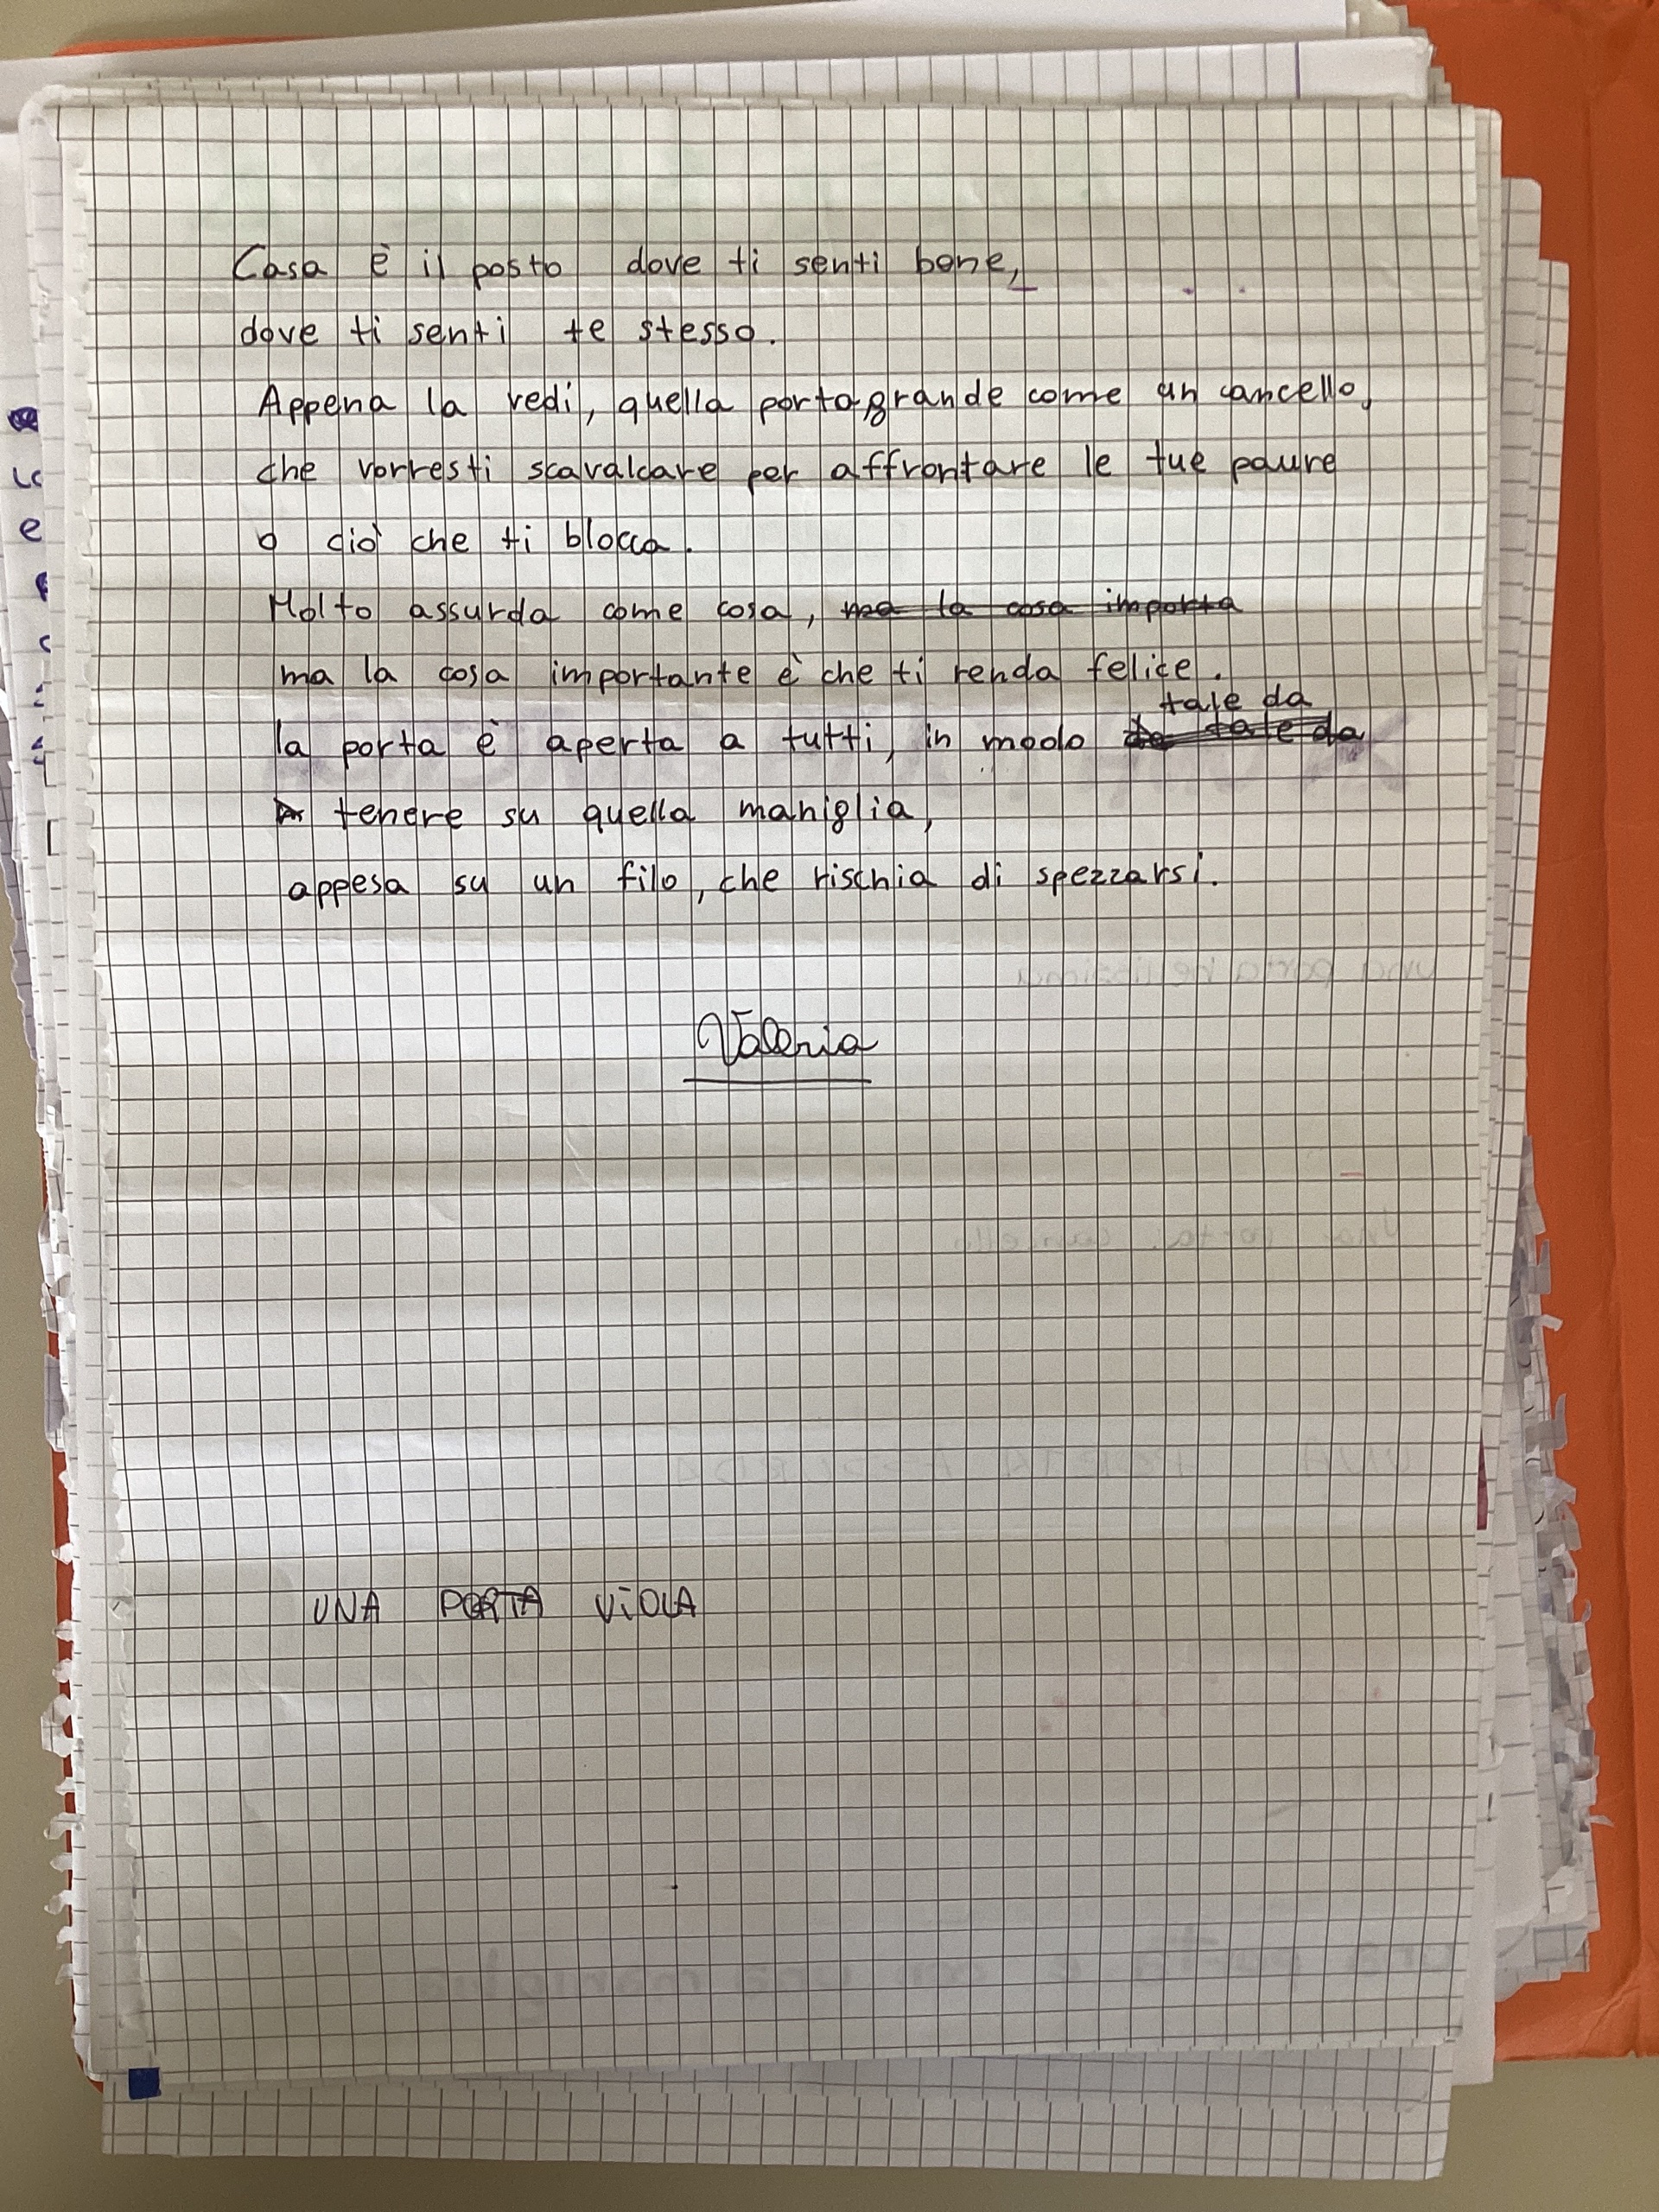 Casa è il posto dove ti senti bene,
dove ti senti te stesso.
Appena la vedi, quella porta grande come un cancello,
che vorresti scavalcare per affrontare le tue paure
o ciò che ti blocca.
Molto assurda come cosa, ma la cosa importa
ma la cosa importante è che ti renda felice.
tale da
la porta è aperta a tutti, in modo da tale da
tenere su quella maniglia,
appesa su un filo, che rischia di spezzarsi.
Valeria
UNA PORTA ViOLA